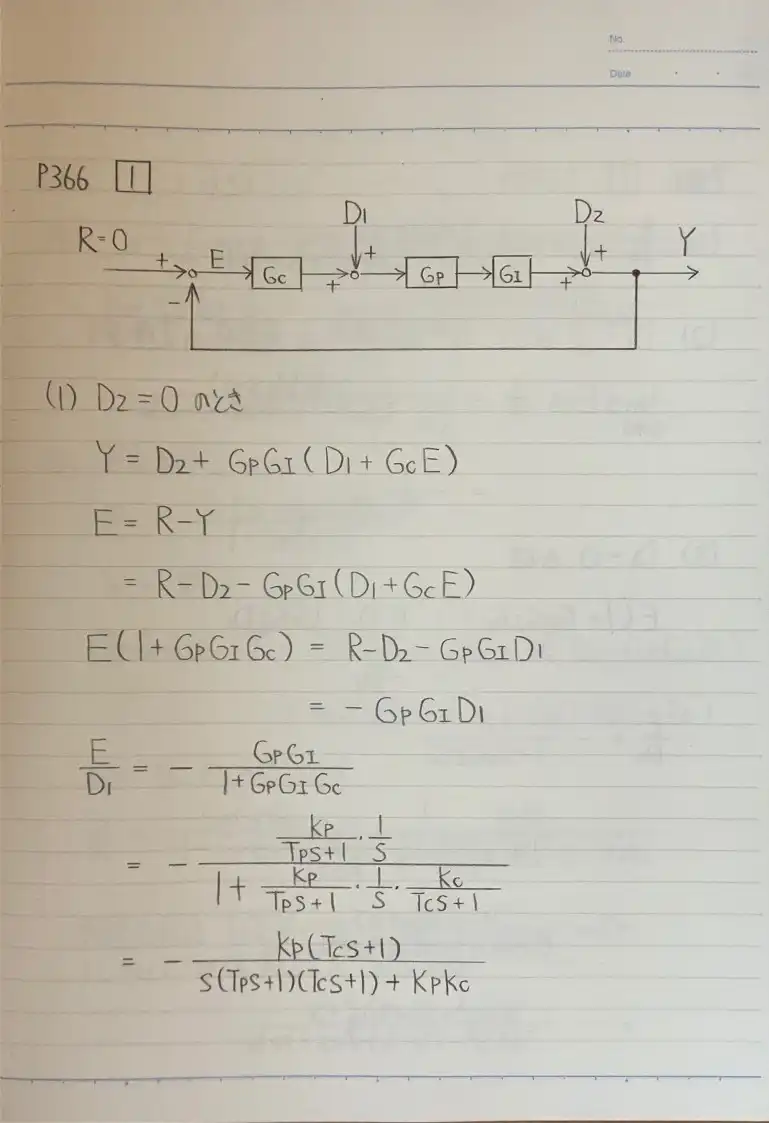 No.
Date
P366 1
D1 D2
R=0 + E Gc + + Gp GI + + Y
-
(1) D2 = 0 のとき
Y = D2 + GpGI(D1 + GcE)
E = R-Y
= R-D2-GpGI(D1+GcE)
E(1+GpGIGc) = R-D2-GpGID1
= -GpGID1
E/D1 = - GpGI/(1+GpGIGc)
= - (Kp/(Tps+1)・1/s)/(1+Kp/(Tps+1)・1/s・Kc/(Tcs+1))
= - Kp(Tcs+1)/(s(Tps+1)(Tcs+1)+KpKc)